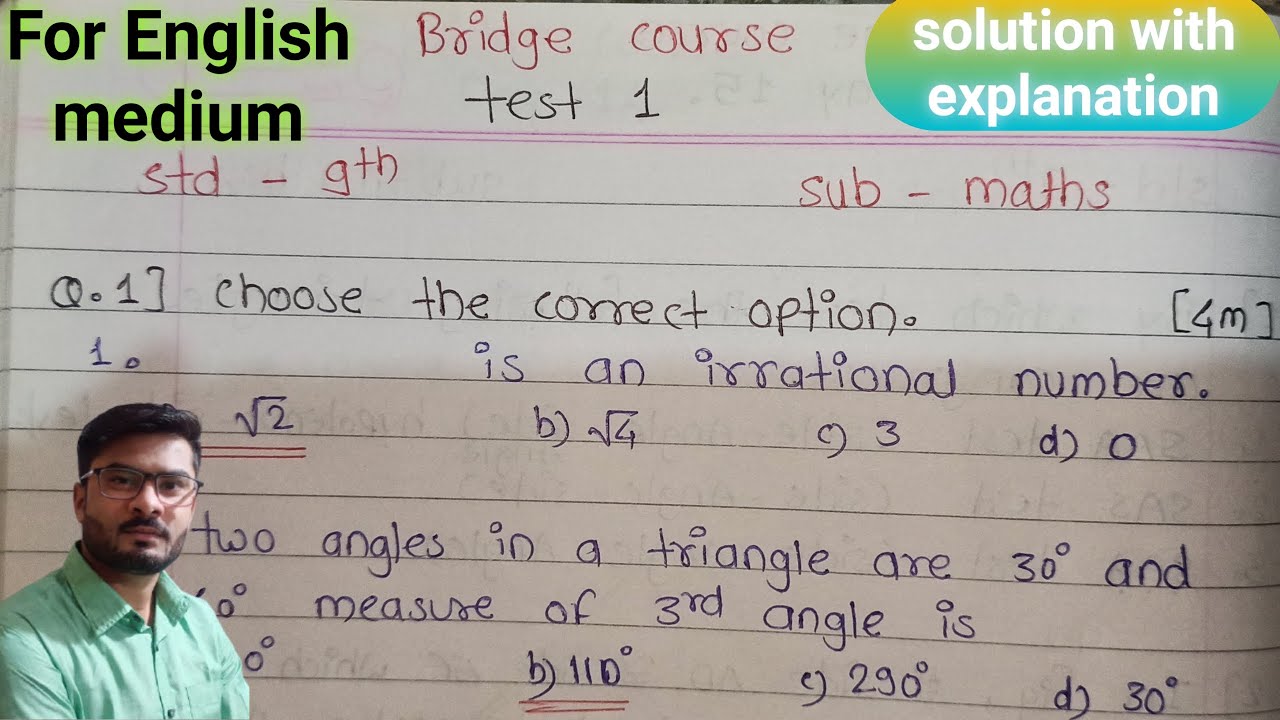 For English
medium
Bridge course
test 1
solution with
explanation
std - 9th
sub - maths
Q.1] choose the correct option. [4m]
1. is an irrational number.
√2 b) √4 c) 3 d) 0
two angles in a triangle are 30° and
0° measure of 3rd angle is
0° b) 110° c) 290° d) 30°